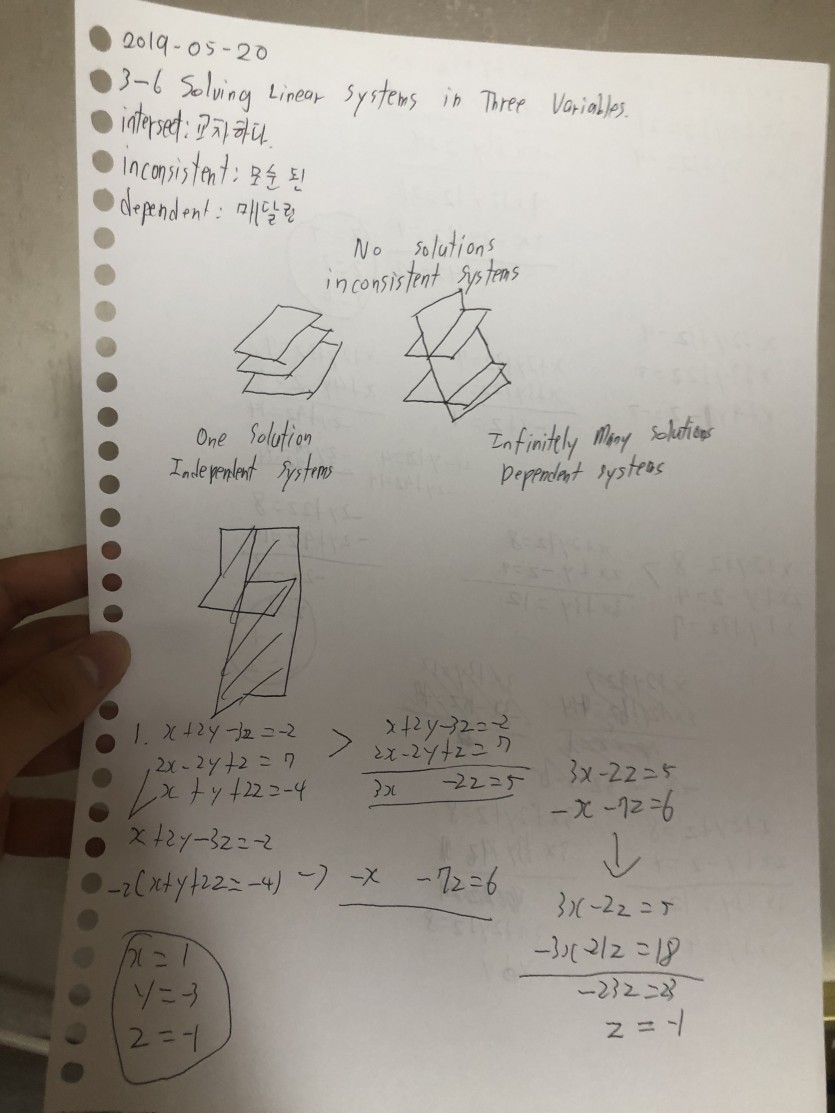 2019-05-20
3-6 Solving Linear Systems in Three Variables.
intersect: 교차하다.
inconsistent: 모순 된
dependent: 매달린
No solutions
inconsistent systems
One Solution
Independent systems
Infinitely Many solutions
Dependent systems
1. x+2y-3z=-2
2x-2y+z=7
x+y+2z=-4
>
x+2y-3z=-2
2x-2y+z=7
3x -2z=5
3x-2z=5
-x-7z=6
x+2y-3z=-2
-2(x+y+2z=-4) → -x -7z=6
3x-2z=5
-3x-21z=18
-23z=23
z=-1
x=1
y=-3
z=-1